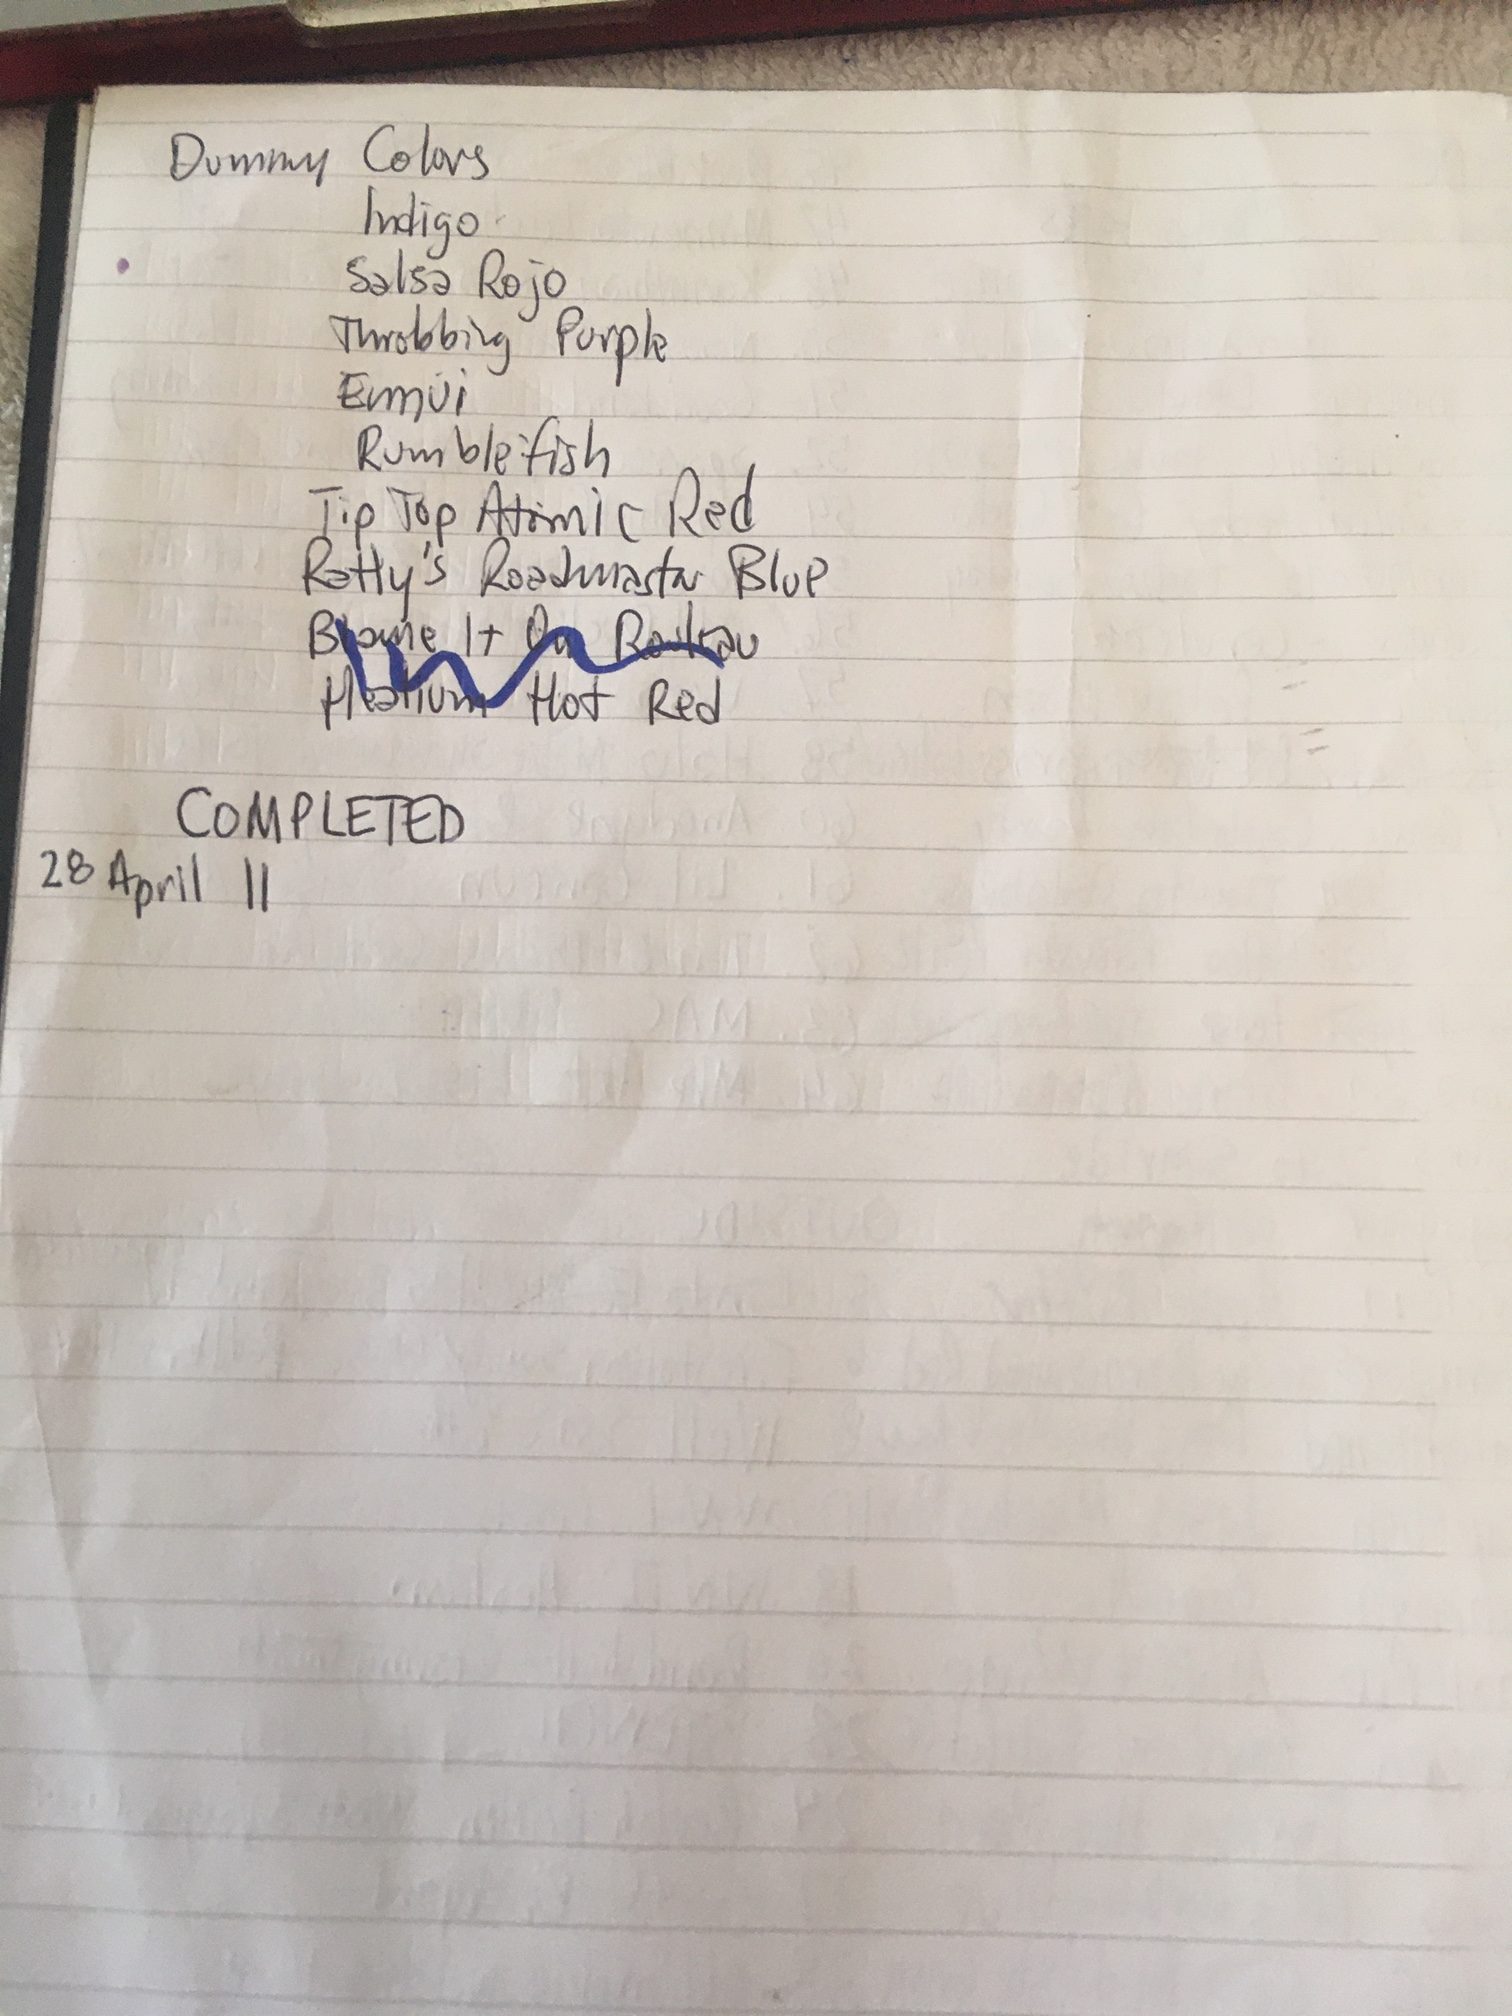 Dummy Colors
Indigo
Salsa Rojo
Throbbing Purple
Eimui
Rumblefish
Tip Top Atomic Red
Ratty's Roadmaster Blue
Blame It On
Hot Red
COMPLETED
28 April 11